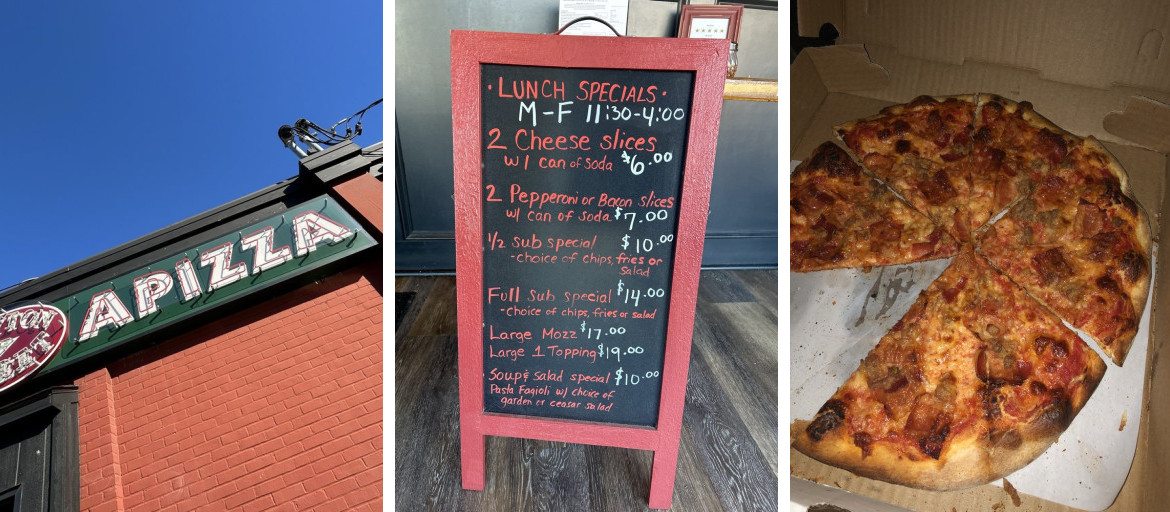 APIZZA
TON
· LUNCH SPECIALS ·
M-F 11:30-4:00
2 Cheese slices
w/ 1 can of soda $6.00
2 Pepperoni or Bacon slices
w/ can of soda $7.00
1/2 sub special $10.00
-choice of chips, fries or
salad
Full Sub special $14.00
-choice of chips, fries or salad
Large Mozz $17.00
Large 1 Topping $19.00
Soup & salad special $10.00
Pasta Fagioli w/ choice of
garden or ceasar salad